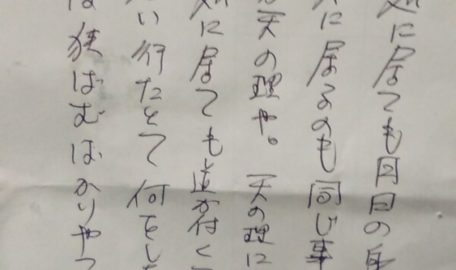 処に居ても月日の身
に居るのも同じ事
天の理や。天の理に
処に居ても道が付く
い行たとて何をし
狭ばむばかりやつ